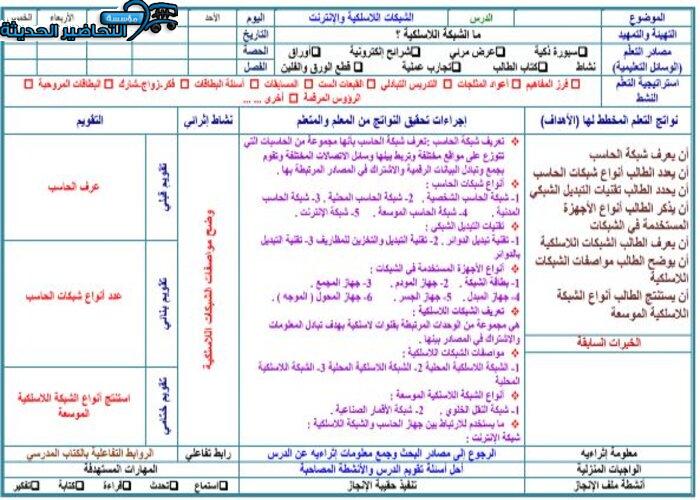 الموضوع
الدرس
الشبكات اللاسلكية والإنترنت
اليوم
الأحد
الأربعاء
الخميس
مؤسسة
التحاضير الحديثة
التهيئة والتمهيد
ما الشبكة اللاسلكية ؟
التاريخ
مصادر التعلم
سبورة ذكية
عرض مرئي
شرائح إلكترونية
أوراق
الحصة
(الوسائل التعليمية)
نشاط
كتاب الطالب
تجارب عملية
قطع الورق والفلين
الفصل
استراتيجية التعلم
النشط
فرز المفاهيم
أعواد المثلجات
التدريس التبادلي
القبعات الست
المسابقات
أسئلة البطاقات
فكر-زواج-شارك
البطاقات المروحية
الرؤوس المرقمة
أخرى ... ...
نواتج التعلم المخطط لها (الأهداف)
إجراءات تحقيق النواتج من المعلم والمتعلم
نشاط إثرائي
التقويم
أن يعرف شبكة الحاسب
أن يعدد الطالب أنواع شبكات الحاسب
أن يحدد الطالب تقنيات التبديل الشبكي
أن يذكر الطالب أنواع الأجهزة
المستخدمة في الشبكات
أن يعرف الطالب الشبكات اللاسلكية
أن يوضح الطالب مواصفات الشبكات
اللاسلكية
أن يستنتج الطالب أنواع الشبكة
اللاسلكية الموسعة
الخبرات السابقة
تعريف شبكة الحاسب :تعرف شبكة الحاسب بأنها مجموعة من الحاسبات التي
تتوزع على مواقع مختلفة وتربط بينها وسائل الاتصالات المختلفة وتقوم
بجمع وتبادل البيانات الرقمية والاشتراك في المصادر المرتبطة بها .
أنواع شبكات الحاسب :
1- شبكة الحاسب الشخصية . 2- شبكة الحاسب المحلية . 3- شبكة الحاسب
المدنية . 4- شبكة الحاسب الموسعة . 5- شبكة الإنترنت .
تقنيات التبديل الشبكي :
1- تقنية تبديل الدوائر . 2- تقنية التبديل والتخزين للمظاريف 3- تقنية التبديل
بالدوائر
أنواع الأجهزة المستخدمة في الشبكات :
1- بطاقة الشبكة . 2- جهاز المودم . 3- جهاز المجمع .
4- جهاز المبدل . 5- جهاز الجسر . 6- جهاز المحول ( الموجه ) .
تعريف الشبكات اللاسلكية :
هي مجموعة من الوحدات المرتبطة بقنوات لاسلكية بهدف تبادل المعلومات
والاشتراك في المصادر بينها .
مواصفات الشبكات اللاسلكية :
1- الشبكة اللاسلكية المحلية 2- الشبكة اللاسلكية المحلية 3- الشبكة اللاسلكية
المحلية
أنواع الشبكة الاسلكية الموسعة :
1- شبكة النقل الخلوي . 2- شبكة الأقمار الصناعية .
ما يستخدم للارتباط بين جهاز الحاسب والشبكة اللاسلكية :
شبكة الإنترنت :
وضح مواصفات الشبكات اللاسلكية
تقويم قبلي
عرف الحاسب
تقويم بنائي
عدد أنواع شبكات الحاسب
تقويم ختامي
استنتج أنواع الشبكة اللاسلكية
الموسعة
معلومة إثرائيه
الرجوع إلى مصادر البحث وجمع معلومات إثرائيه عن الدرس
رابط تفاعلي
الروابط التفاعلية بالكتاب المدرسي
الواجبات المنزلية
أحل أسئلة تقويم الدرس والأنشطة المصاحبة
المهارات المستهدفة
أنشطة ملف الإنجاز
تنفيذ حقيبة الإنجاز
استماع
تحدث
قراءة
كتابة
تفكير